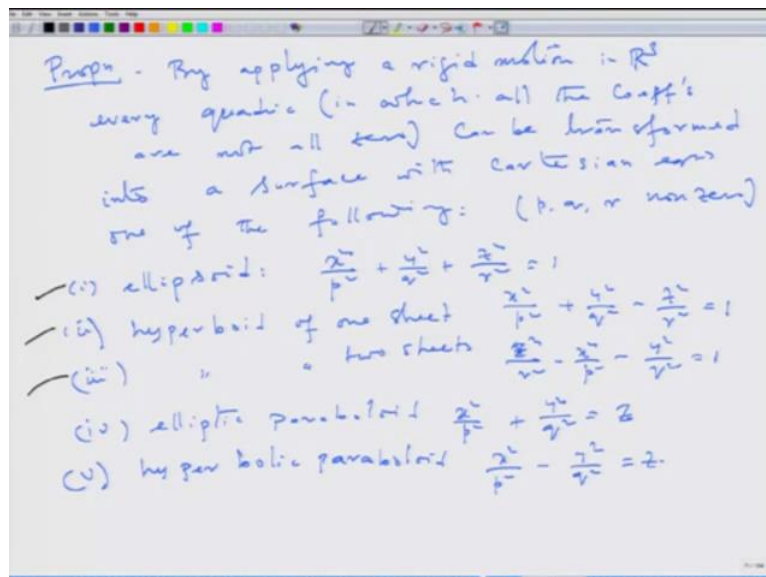 Propn. - By applying a rigid motion in ℝ³
every quadric (in which all the coeff's
are not all zero) can be transformed
into a surface with cartesian eqns
one of the following: (p, q, r non zero)
(i) ellipsoid: x²/p² + y²/q² + z²/r² = 1
(ii) hyperboid of one sheet x²/p² + y²/q² - z²/r² = 1
(iii) " " two sheets z²/r² - x²/p² - y²/q² = 1
(iv) elliptic paraboloid x²/p² + y²/q² = z
(v) hyperbolic paraboloid x²/p² - y²/q² = z.